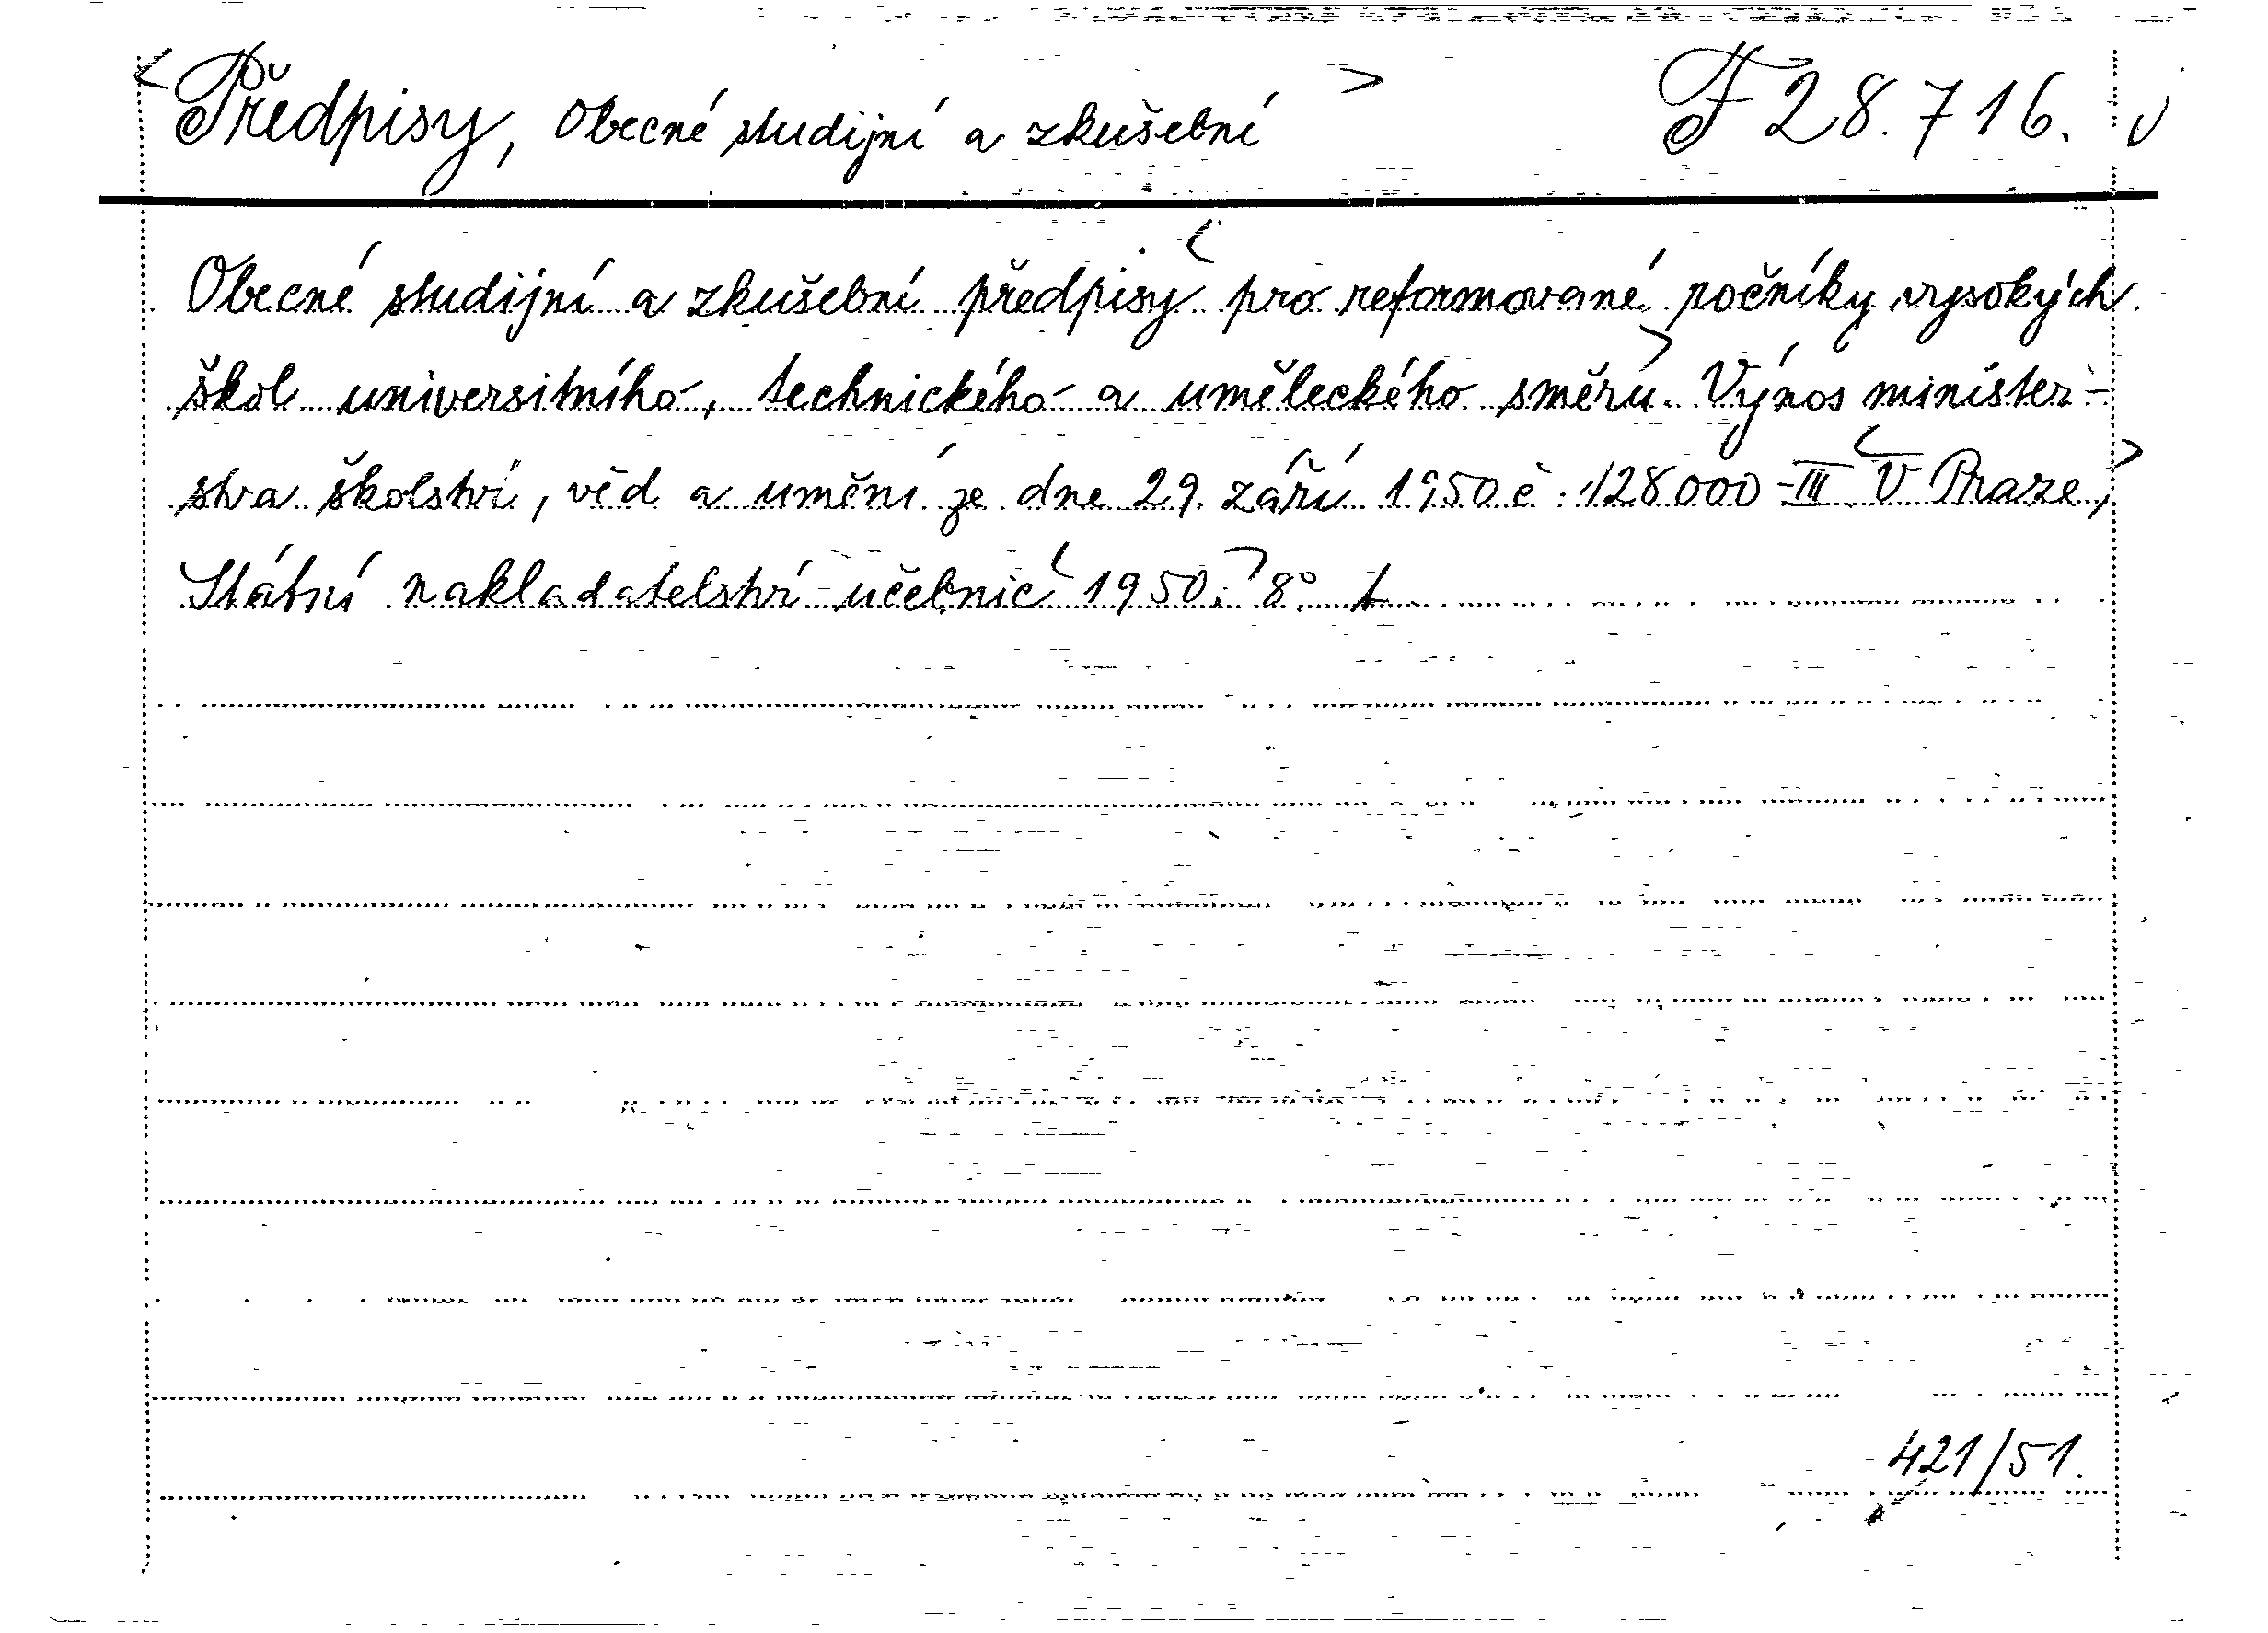 <Předpisy, Obecné studijní a zkušební> F 28.716.
Obecné studijní a zkušební předpisy <pro reformované ročníky vysokých
škol universitního, technického a uměleckého směru.> Výnos minister-
stva školství, věd a umění ze dne 29. září 1950 č. 128000-III. <V Praze,>
Státní nakladatelství učebnic <1950.> 8°.
421/51.